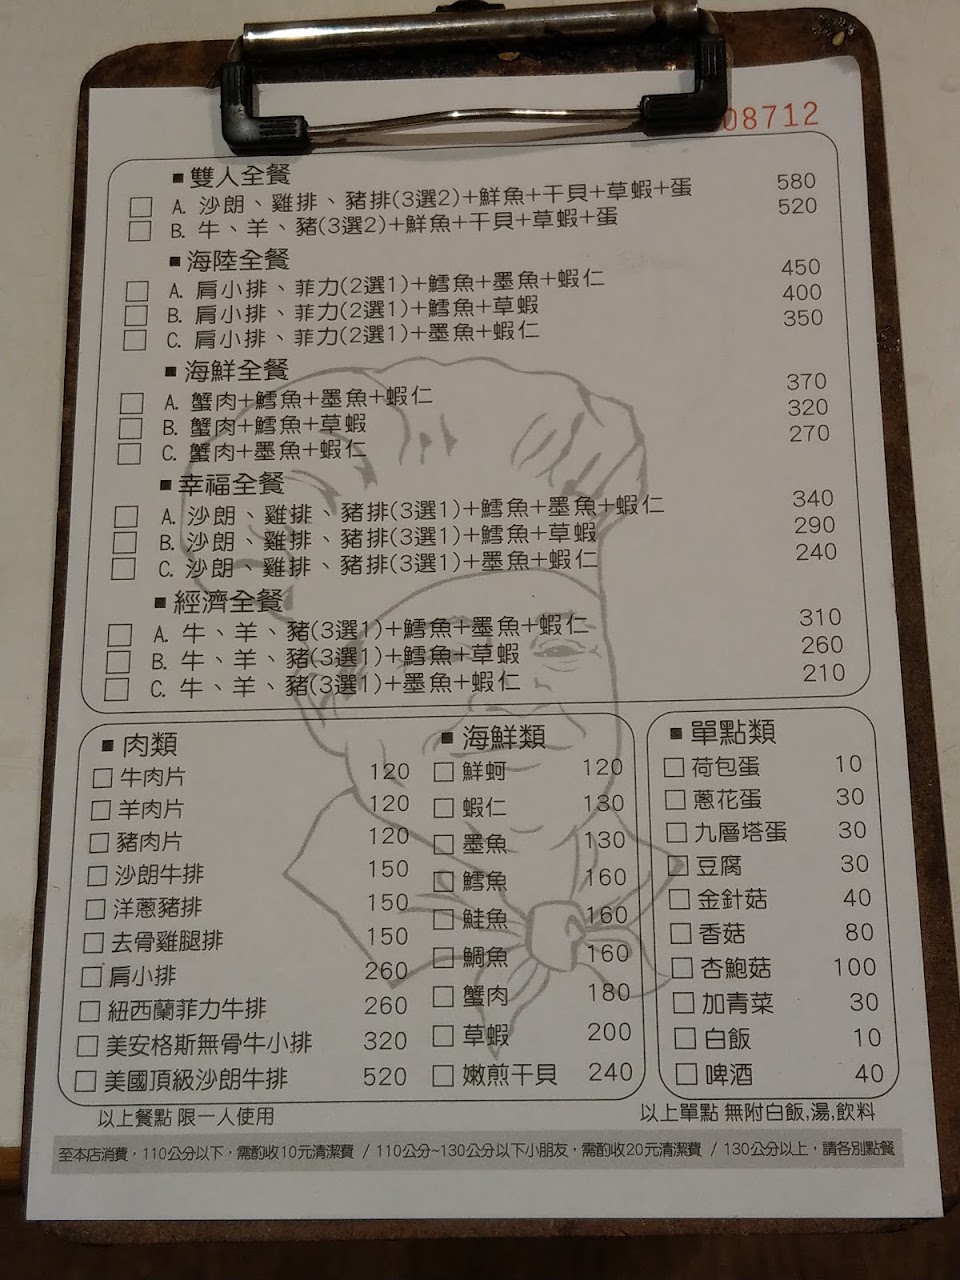 08712
■ 雙人全餐
□ A. 沙朗、雞排、豬排(3選2)+鮮魚+干貝+草蝦+蛋 580
□ B. 牛、羊、豬(3選2)+鮮魚+干貝+草蝦+蛋 520
■ 海陸全餐
□ A. 肩小排、菲力(2選1)+鱈魚+墨魚+蝦仁 450
□ B. 肩小排、菲力(2選1)+鱈魚+草蝦 400
□ C. 肩小排、菲力(2選1)+墨魚+蝦仁 350
■ 海鮮全餐
□ A. 蟹肉+鱈魚+墨魚+蝦仁 370
□ B. 蟹肉+鱈魚+草蝦 320
□ C. 蟹肉+墨魚+蝦仁 270
■ 幸福全餐
□ A. 沙朗、雞排、豬排(3選1)+鱈魚+墨魚+蝦仁 340
□ B. 沙朗、雞排、豬排(3選1)+鱈魚+草蝦 290
□ C. 沙朗、雞排、豬排(3選1)+墨魚+蝦仁 240
■ 經濟全餐
□ A. 牛、羊、豬(3選1)+鱈魚+墨魚+蝦仁 310
□ B. 牛、羊、豬(3選1)+鱈魚+草蝦 260
□ C. 牛、羊、豬(3選1)+墨魚+蝦仁 210
■ 肉類
□ 牛肉片 120
□ 羊肉片 120
□ 豬肉片 120
□ 沙朗牛排 150
□ 洋蔥豬排 150
□ 去骨雞腿排 150
□ 肩小排 260
□ 紐西蘭菲力牛排 260
□ 美安格斯無骨牛小排 320
□ 美國頂級沙朗牛排 520
■ 海鮮類
□ 鮮蚵 120
□ 蝦仁 130
□ 墨魚 130
□ 鱈魚 160
□ 鮭魚 160
□ 鯛魚 160
□ 蟹肉 180
□ 草蝦 200
□ 嫩煎干貝 240
■ 單點類
□ 荷包蛋 10
□ 蔥花蛋 30
□ 九層塔蛋 30
□ 豆腐 30
□ 金針菇 40
□ 香菇 80
□ 杏鮑菇 100
□ 加青菜 30
□ 白飯 10
□ 啤酒 40
以上餐點 限一人使用
以上單點 無附白飯,湯,飲料
至本店消費，110公分以下，需酌收10元清潔費 / 110公分~130公分以下小朋友，需酌收20元清潔費 / 130公分以上，請各別點餐